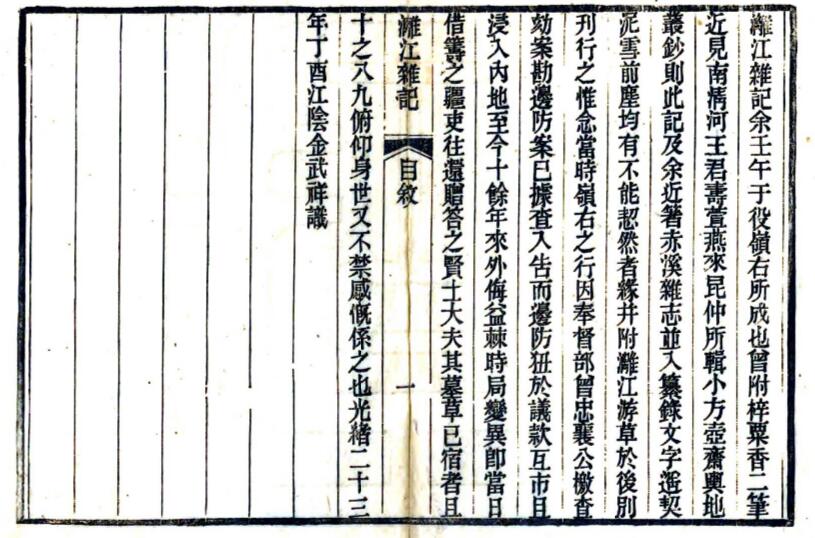 灕江雜記余壬午于役嶺右所成也曾附梓粟香二筆
近見南淸河王君壽萱燕來昆仲所輯小方壺齋輿地
叢鈔則此記及余近著赤溪雜志並入纂錄文字遥契
泥雪前塵均有不能恝然者緣并附灕江游草於後別
刊行之惟念當時嶺右之行因奉督部曾忠襄公檄查
劾案勘邊防案已據查入告而邊防狃於議款互市且
浸入內地至今十餘年來外侮益棘時局變異卽當日
借籌之疆吏往還贈答之賢士大夫其墓草已宿者且
灕江雜記 自敘 一
十之八九俯仰身世又不禁感慨係之也光緒二十三
年丁酉江陰金武祥識